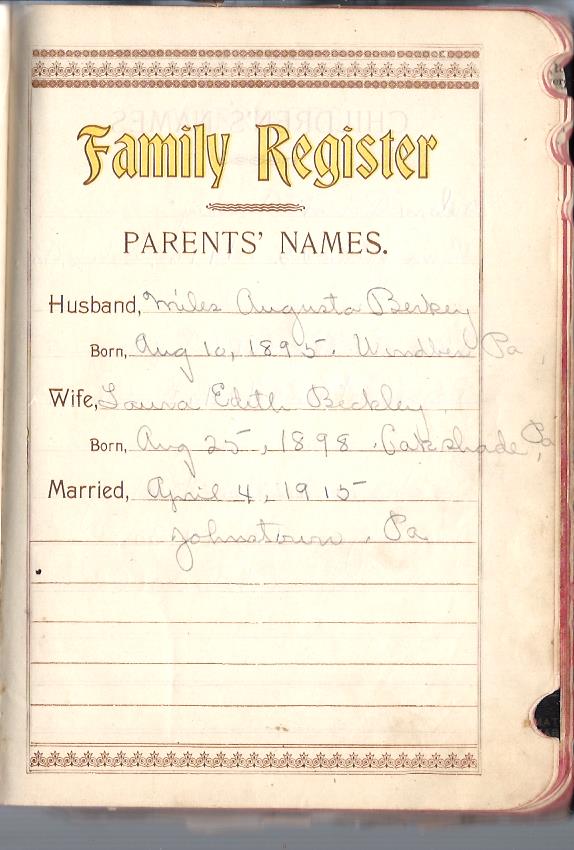 Family Register
PARENTS' NAMES.
Husband, Miles Augusta Berkey
Born, Aug 10, 1895. Windber Pa
Wife, Laura Edith Beckley
Born, Aug 25, 1898. Oakshade Pa,
Married, April 4, 1915
Johnstown, Pa